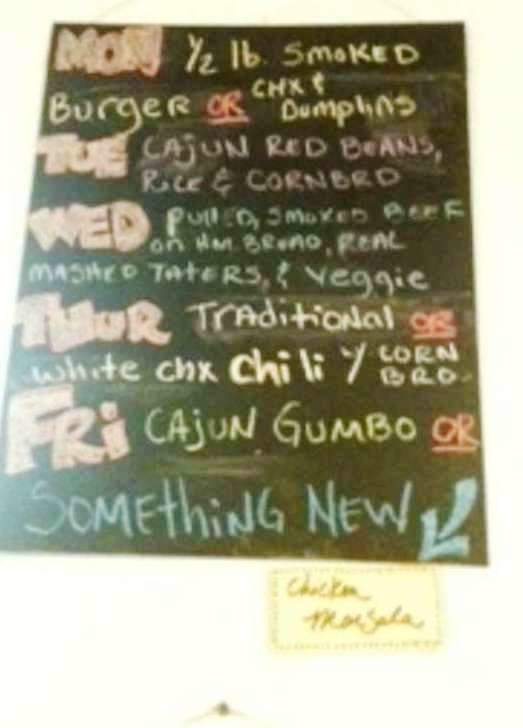 MON ½ lb. SMOKED
BURGER OR CHX &
DumplNS
TUE CAJUN RED BEANS,
RICE & CORNBRD
WED PULLED, SMOKED BEEF
on HM BREAD, REAL
MASHED TATERS, & Veggie
THUR TRADitiONAl OR
white chx Chili w/ CORN
BRD.
FRi CAJUN GUMBO OR
SOMEthiNG NEW
Chicken
Marsala